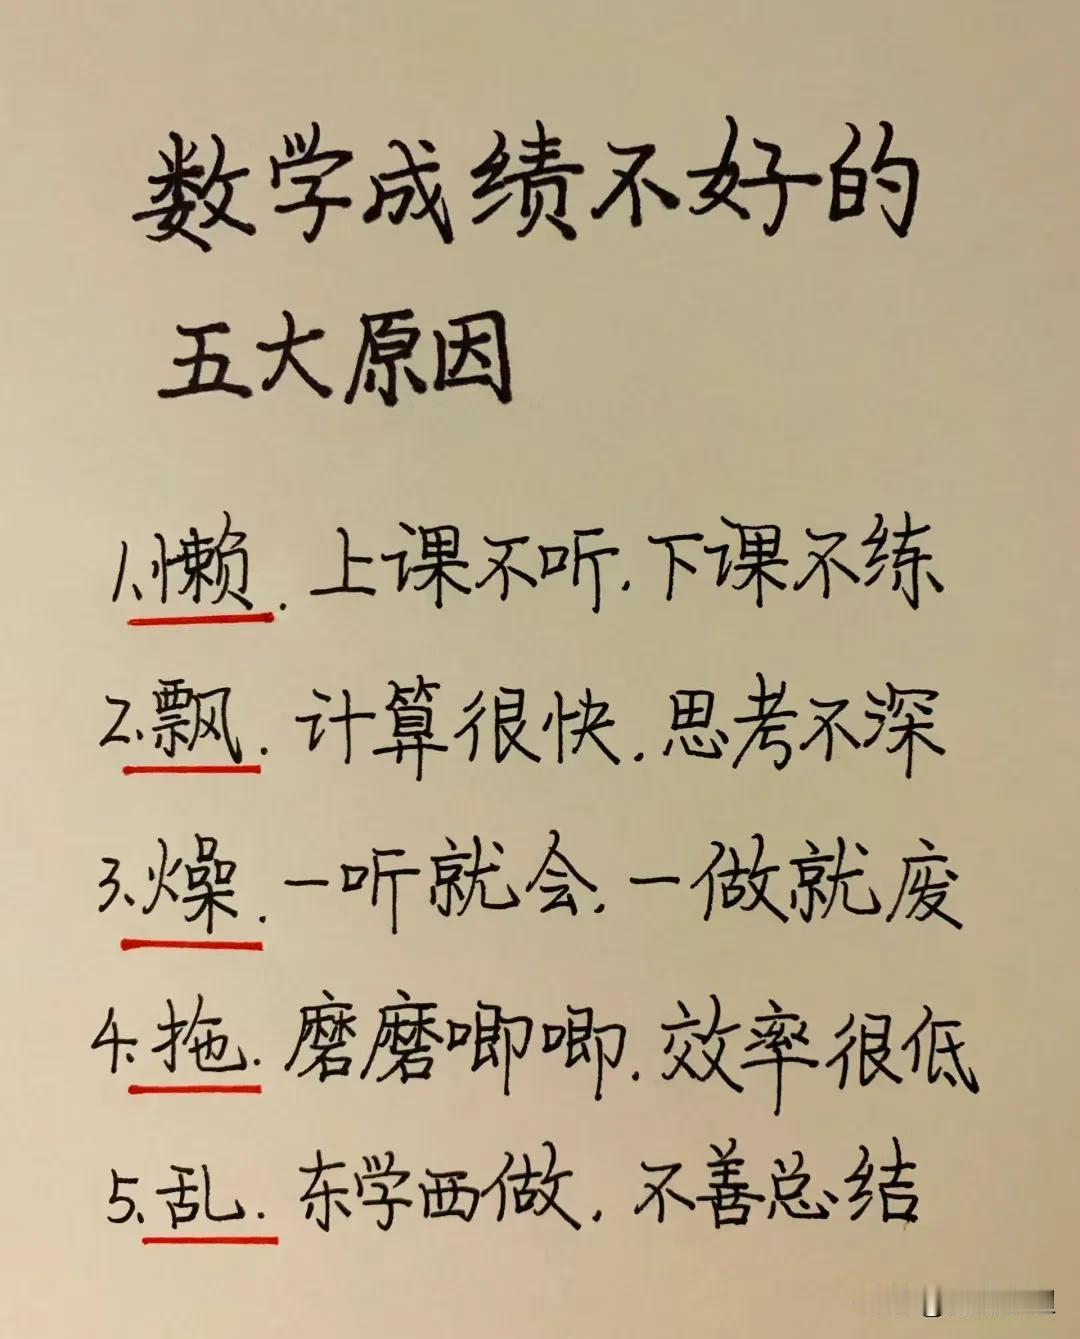 数学成绩不好的
五大原因
1.懒.上课不听.下课不练
2.飘.计算很快.思考不深
3.燥.一听就会.一做就废
4.拖.磨磨唧唧.效率很低
5.乱.东学西做.不善总结